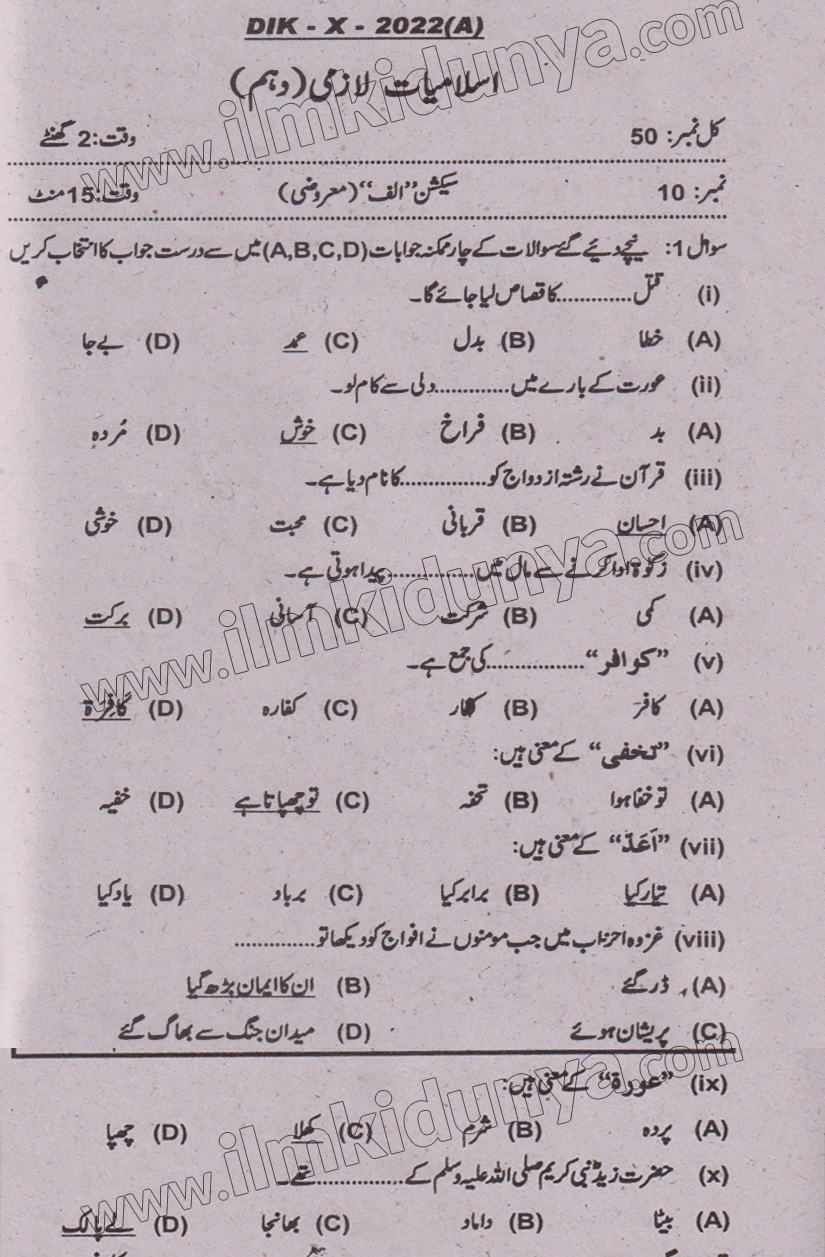 DIK - X - 2022(A)
اسلامیات لازمی (دہم)
کل نمبر: 50 وقت: 2 گھنٹے
نمبر: 10 سیکشن "الف" (معروضی) وقت: 15 منٹ
سوال 1: نیچے دیئے گئے سوالات کے چار ممکنہ جوابات (A,B,C,D) میں سے درست جواب کا انتخاب کریں
(i) قتل.............کا قصاص لیا جائے گا۔
(A) خطا (B) بدل (C) عمد (D) بے جا
(ii) عورت کے بارے میں.............دلی سے کام لو۔
(A) بد (B) فراخ (C) خوش (D) مُردہ
(iii) قرآن نے رشتہ ازدواج کو...............کا نام دیا ہے۔
(A) احسان (B) قربانی (C) محبت (D) خوشی
(iv) زکوٰۃ ادا کرنے سے مال میں...............پیدا ہوتی ہے۔
(A) کمی (B) شرکت (C) آسانی (D) برکت
(v) "کوافر".................کی جمع ہے۔
(A) کافر (B) کفار (C) کفارہ (D) کَافِرَۃ
(vi) "تخفی" کے معنی ہیں:
(A) تو خفا ہوا (B) تحفہ (C) تو چھپاتا ہے (D) خفیہ
(vii) "اَعَدَّ" کے معنی ہیں:
(A) تیار کیا (B) برابر کیا (C) برباد (D) یاد کیا
(viii) غزوہ احزاب میں جب مومنوں نے افواج کو دیکھا تو..............
(A) ڈر گئے (B) ان کا ایمان بڑھ گیا
(C) پریشان ہوئے (D) میدان جنگ سے بھاگ گئے
(ix) "عورۃ" کے معنی ہیں:
(A) پردہ (B) شرم (C) کھلا (D) چھپا
(x) حضرت زیدؓ نبی کریم صلی اللہ علیہ وسلم کے...............تھے۔
(A) بیٹا (B) داماد (C) بھانجا (D) لے پالک
www.ilmkidunya.com
www.ilmkidunya.com
www.ilmkidunya.com